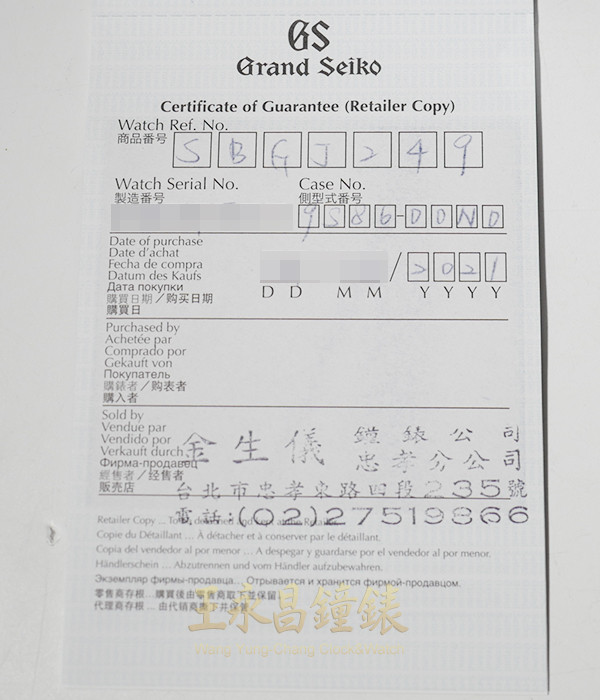 GS
Grand Seiko
Certificate of Guarantee (Retailer Copy)
Watch Ref. No.
商品番号
SBGJ249
Watch Serial No.
製造番号
Case No.
側型式番号
9S86-00N0
Date of purchase
Date d'achat
Fecha de compra
Datum des Kaufs
Дата покупки
購買日期／购买日期
購買日
/ 2021
DD MM YYYY
Purchased by
Achetée par
Comprado por
Gekauft von
Покупатель
購錶者／购表者
購入者
Sold by
Vendue par
Vendido por
Verkauft durch
Фирма-продавец
經售者／经售者
販売店
金生儀 鐘錶公司
忠孝分公司
台北市忠孝東路四段235號
電話:(02)27519866
Retailer Copy ... To be detached and kept at the Retailer.
Copie du Détaillant ... À détacher et à conserver par le détaillant.
Copia del vendedor al por menor ... A despegar y guardarse por el vendedor al por menor.
Händlerschein ... Abzutrennen und vom Händler aufzubewahren.
Экземпляр фирмы-продавца... Отрывается и хранится фирмой-продавцом.
零售商存根 ... 購買後由零售商取下並保留
代理商存根 ... 由代理商撕下并保管
王永昌鐘錶